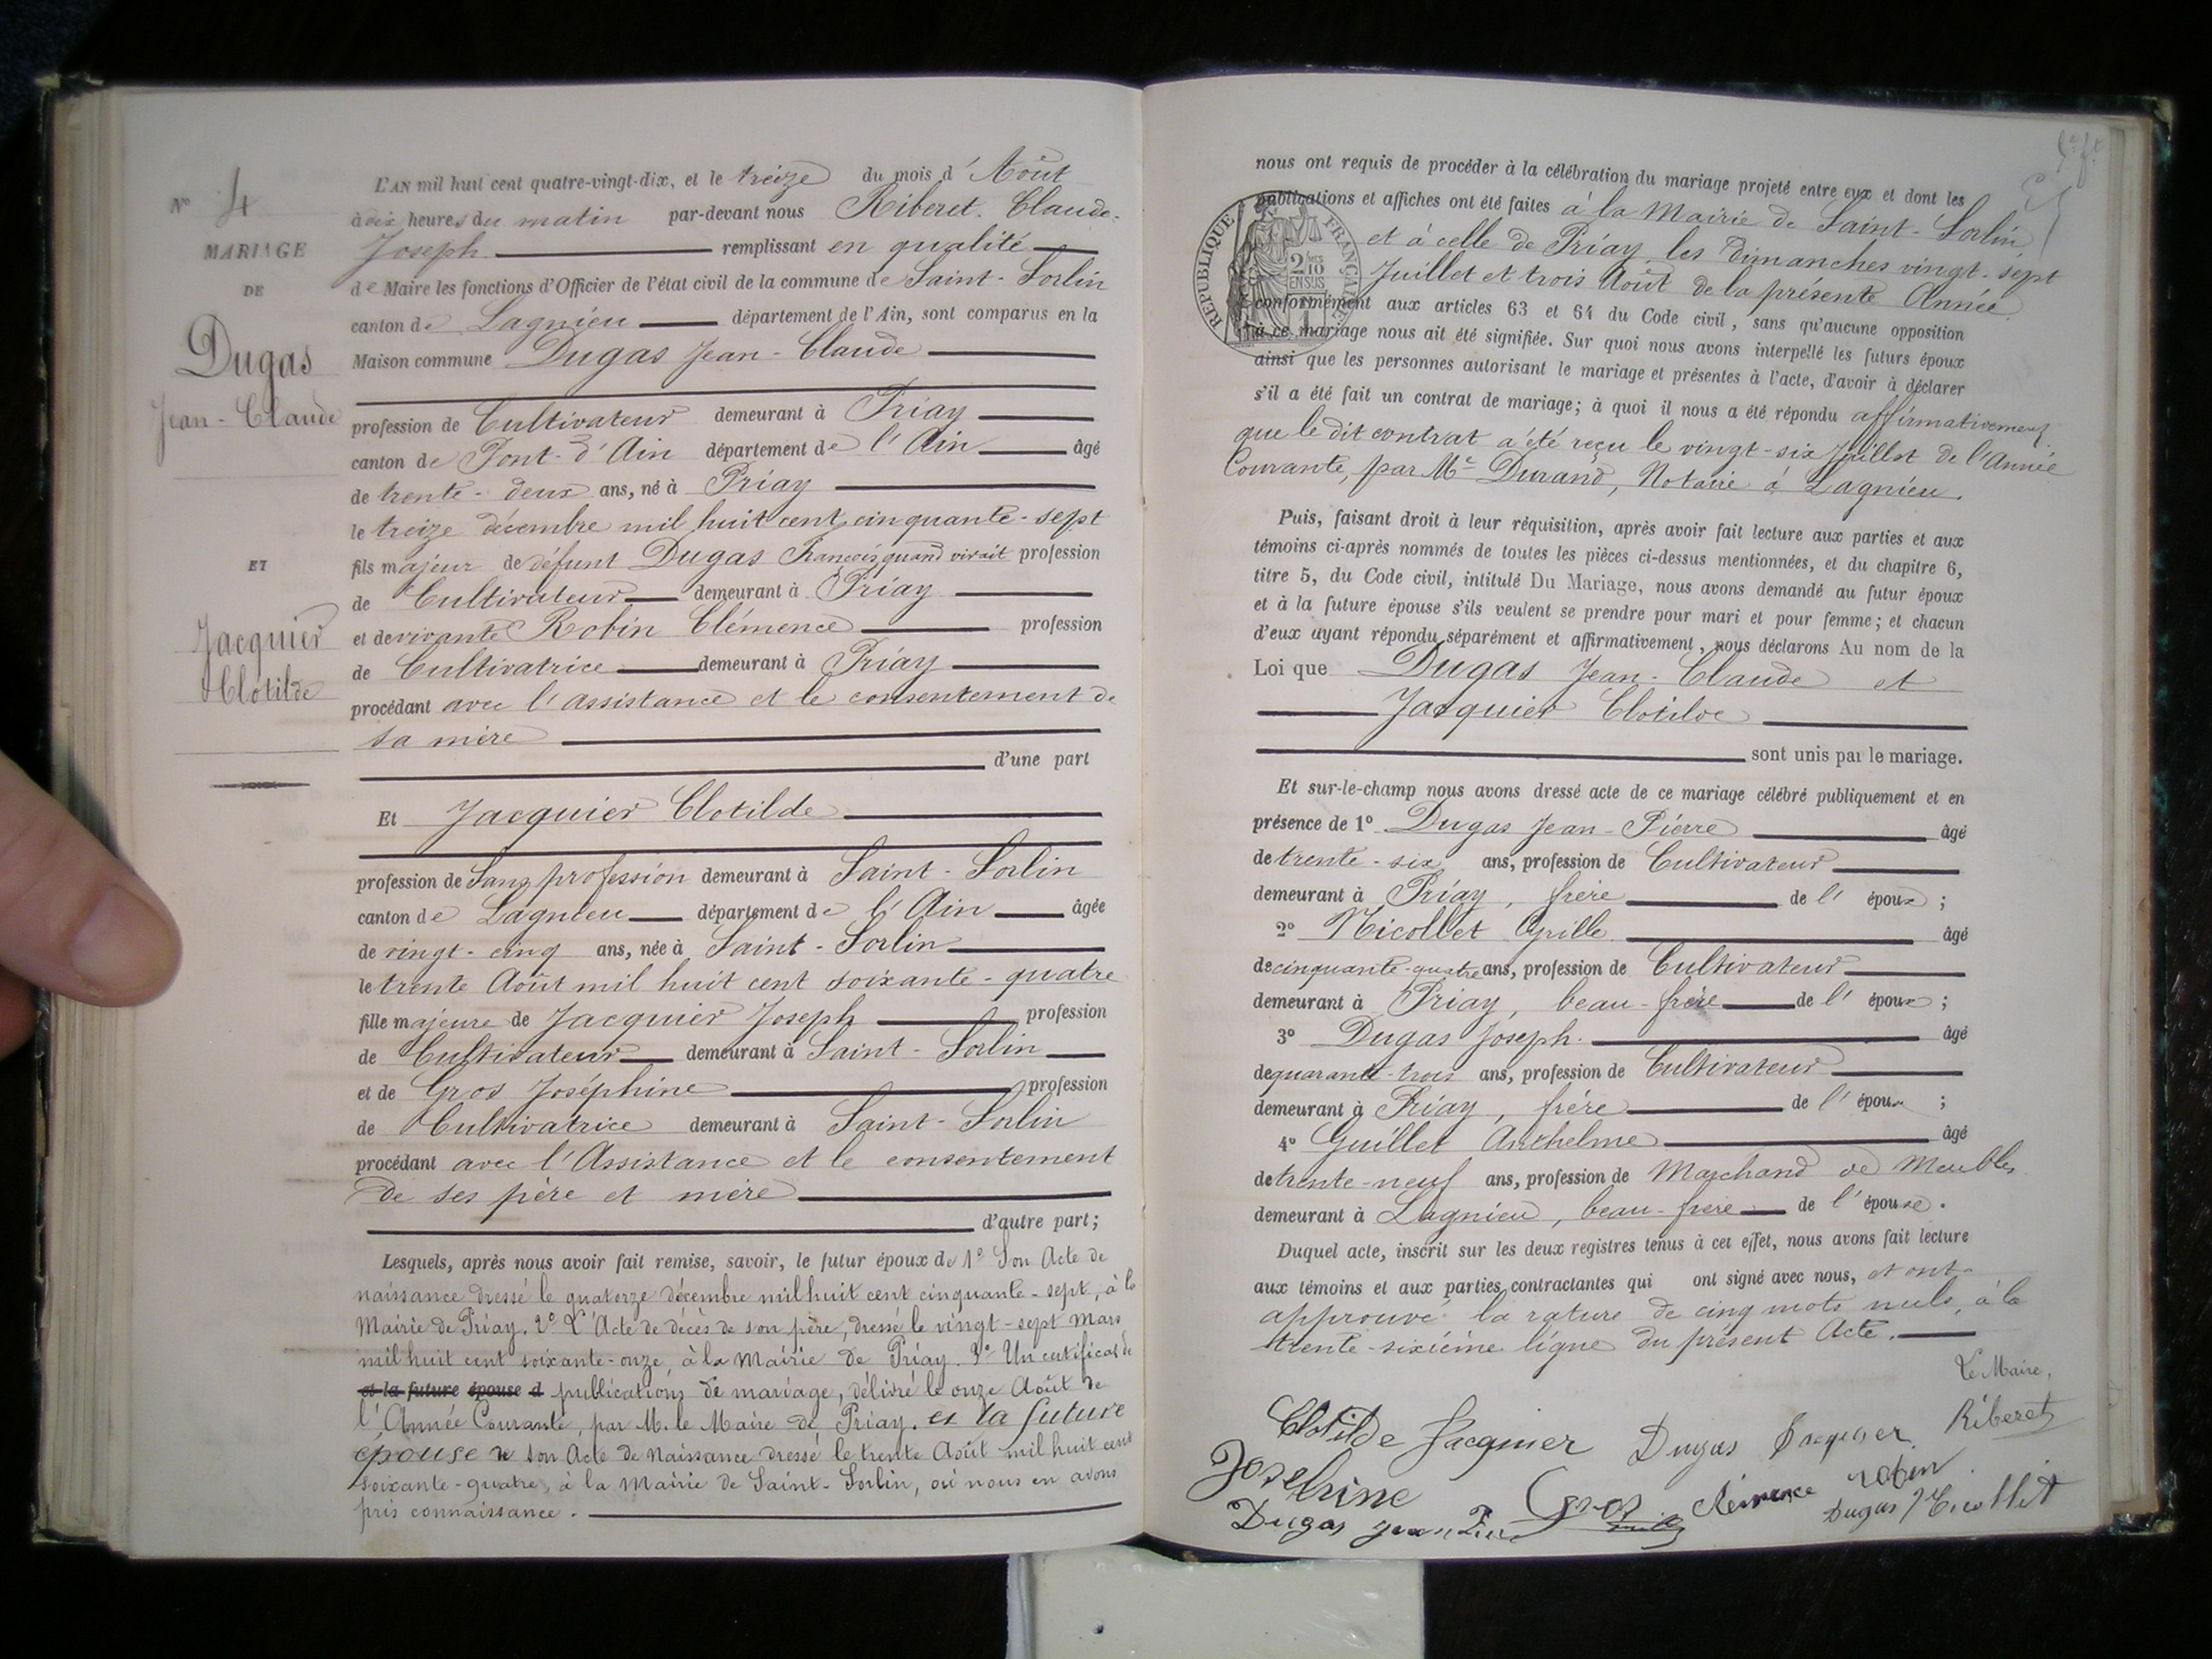 N° 4
MARIAGE
DE
Dugas
Jean-Claude
ET
Jacquier
Clotilde
L'AN mil huit cent quatre-vingt-dix, et le treize du mois d'Août
à dix heures du matin par-devant nous Riberet. Claude-
Joseph remplissant en qualité
de Maire les fonctions d'Officier de l'état civil de la commune de Saint-Sorlin
canton de Lagnieu département de l'Ain, sont comparus en la
Maison commune Dugas Jean-Claude
profession de Cultivateur demeurant à Priay
canton de Pont-d'Ain département de l'Ain âgé
de trente-deux ans, né à Priay
le treize décembre mil huit cent cinquante-sept
fils majeur de défunt Dugas François, quand vivait profession
de Cultivateur demeurant à Priay
et de vivante Robin Clémence profession
de Cultivatrice demeurant à Priay
procédant avec l'assistance et le consentement de
sa mère
d'une part
Et Jacquier Clotilde
profession de Sans profession demeurant à Saint-Sorlin
canton de Lagnieu département de l'Ain âgée
de vingt-cinq ans, née à Saint-Sorlin
le trente Août mil huit cent soixante-quatre
fille majeure de Jacquier Joseph profession
de Cultivateur demeurant à Saint-Sorlin
et de Gros Joséphine profession
de Cultivatrice demeurant à Saint-Sorlin
procédant avec l'Assistance et le consentement
de ses père et mère
d'autre part;
Lesquels, après nous avoir fait remise, savoir, le futur époux de 1° Son Acte de
naissance dressé le quatorze décembre mil huit cent cinquante-sept, à la
Mairie de Priay. 2° L'Acte de décès de son père, dressé le vingt-sept Mars
mil huit cent soixante-onze, à la Mairie de Priay. 3° Un certificat de
et la future épouse d publications de mariage, délivré le onze Août de
l'Année Courante, par M. le Maire de Priay. et la future
épouse de son Acte de Naissance dressé le trente Août mil huit cent
soixante-quatre, à la Mairie de Saint-Sorlin, où nous en avons
pris connaissance.
nous ont requis de procéder à la célébration du mariage projeté entre eux et dont les
publications et affiches ont été faites à la Mairie de Saint-Sorlin
et à celle de Priay, les dimanches vingt-sept
Juillet et trois Août de la présente Année
RÉPUBLIQUE FRANÇAISE
2/10 EN SUS
conformément aux articles 63 et 64 du Code civil, sans qu'aucune opposition
à ce mariage nous ait été signifiée. Sur quoi nous avons interpellé les futurs époux
ainsi que les personnes autorisant le mariage et présentes à l'acte, d'avoir à déclarer
s'il a été fait un contrat de mariage; à quoi il nous a été répondu affirmativement
que le dit contrat a été reçu le vingt-six Juillet de l'Année
Courante, par Me Durand, Notaire à Lagnieu.
Puis, faisant droit à leur réquisition, après avoir fait lecture aux parties et aux
témoins ci-après nommés de toutes les pièces ci-dessus mentionnées, et du chapitre 6,
titre 5, du Code civil, intitulé Du Mariage, nous avons demandé au futur époux
et à la future épouse s'ils veulent se prendre pour mari et pour femme; et chacun
d'eux ayant répondu séparément et affirmativement, nous déclarons Au nom de la
Loi que Dugas Jean-Claude et
Jacquier Clotilde
sont unis par le mariage.
Et sur-le-champ nous avons dressé acte de ce mariage célébré publiquement et en
présence de 1° Dugas Jean-Pierre âgé
de trente-six ans, profession de Cultivateur
demeurant à Priay, frère de l'époux;
2° Nicollet Cyrille âgé
de cinquante-quatre ans, profession de Cultivateur
demeurant à Priay, beau-frère de l'époux;
3° Dugas Joseph. âgé
de quarante-trois ans, profession de Cultivateur
demeurant à Priay, frère de l'époux;
4° Guillet Anthelme âgé
de trente-neuf ans, profession de Marchand de Meubles
demeurant à Lagnieu, beau-frère de l'épouse.
Duquel acte, inscrit sur les deux registres tenus à cet effet, nous avons fait lecture
aux témoins et aux parties contractantes qui ont signé avec nous, et ont
approuvé la rature de cinq mots nuls, à la
trente-sixième ligne du présent Acte.
Le Maire,
Clotilde Jacquier Dugas Jacquier Riberet
Josephine Gros Clémence robin
Dugas Jean Dugas Nicollet